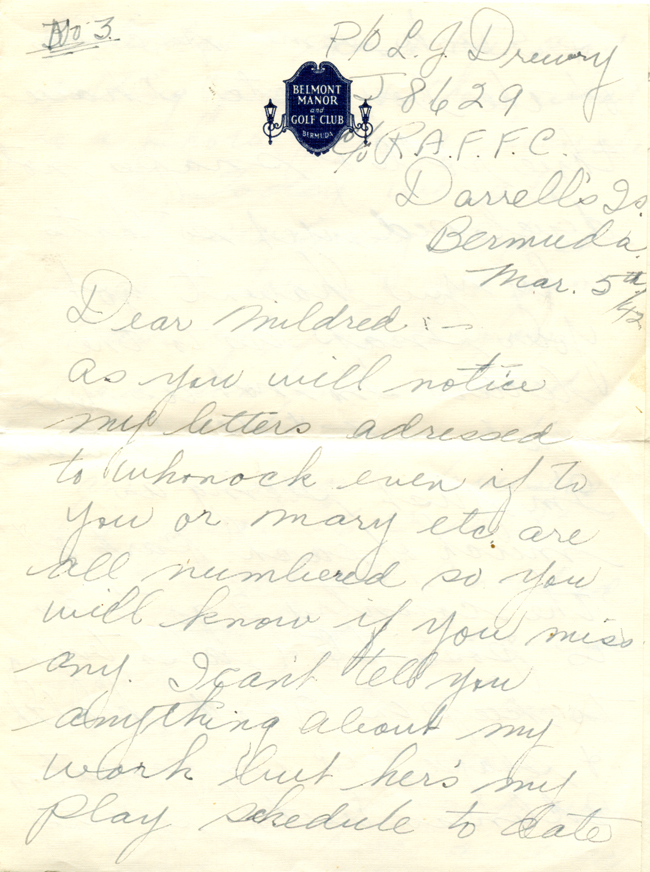 No 3.
P/O L. J. Drewry
J8629
BELMONT
MANOR
and
GOLF CLUB
BERMUDA
c/o R. A. F. F. C.
Darrell's Is.
Bermuda
Mar. 5th/42
Dear Mildred: -
As you will notice
my letters adressed
to Whonock even if to
you or Mary etc. are
all numbered so you
will know if you miss
any. I can't tell you
anything about my
work but her's my
play schedule to date